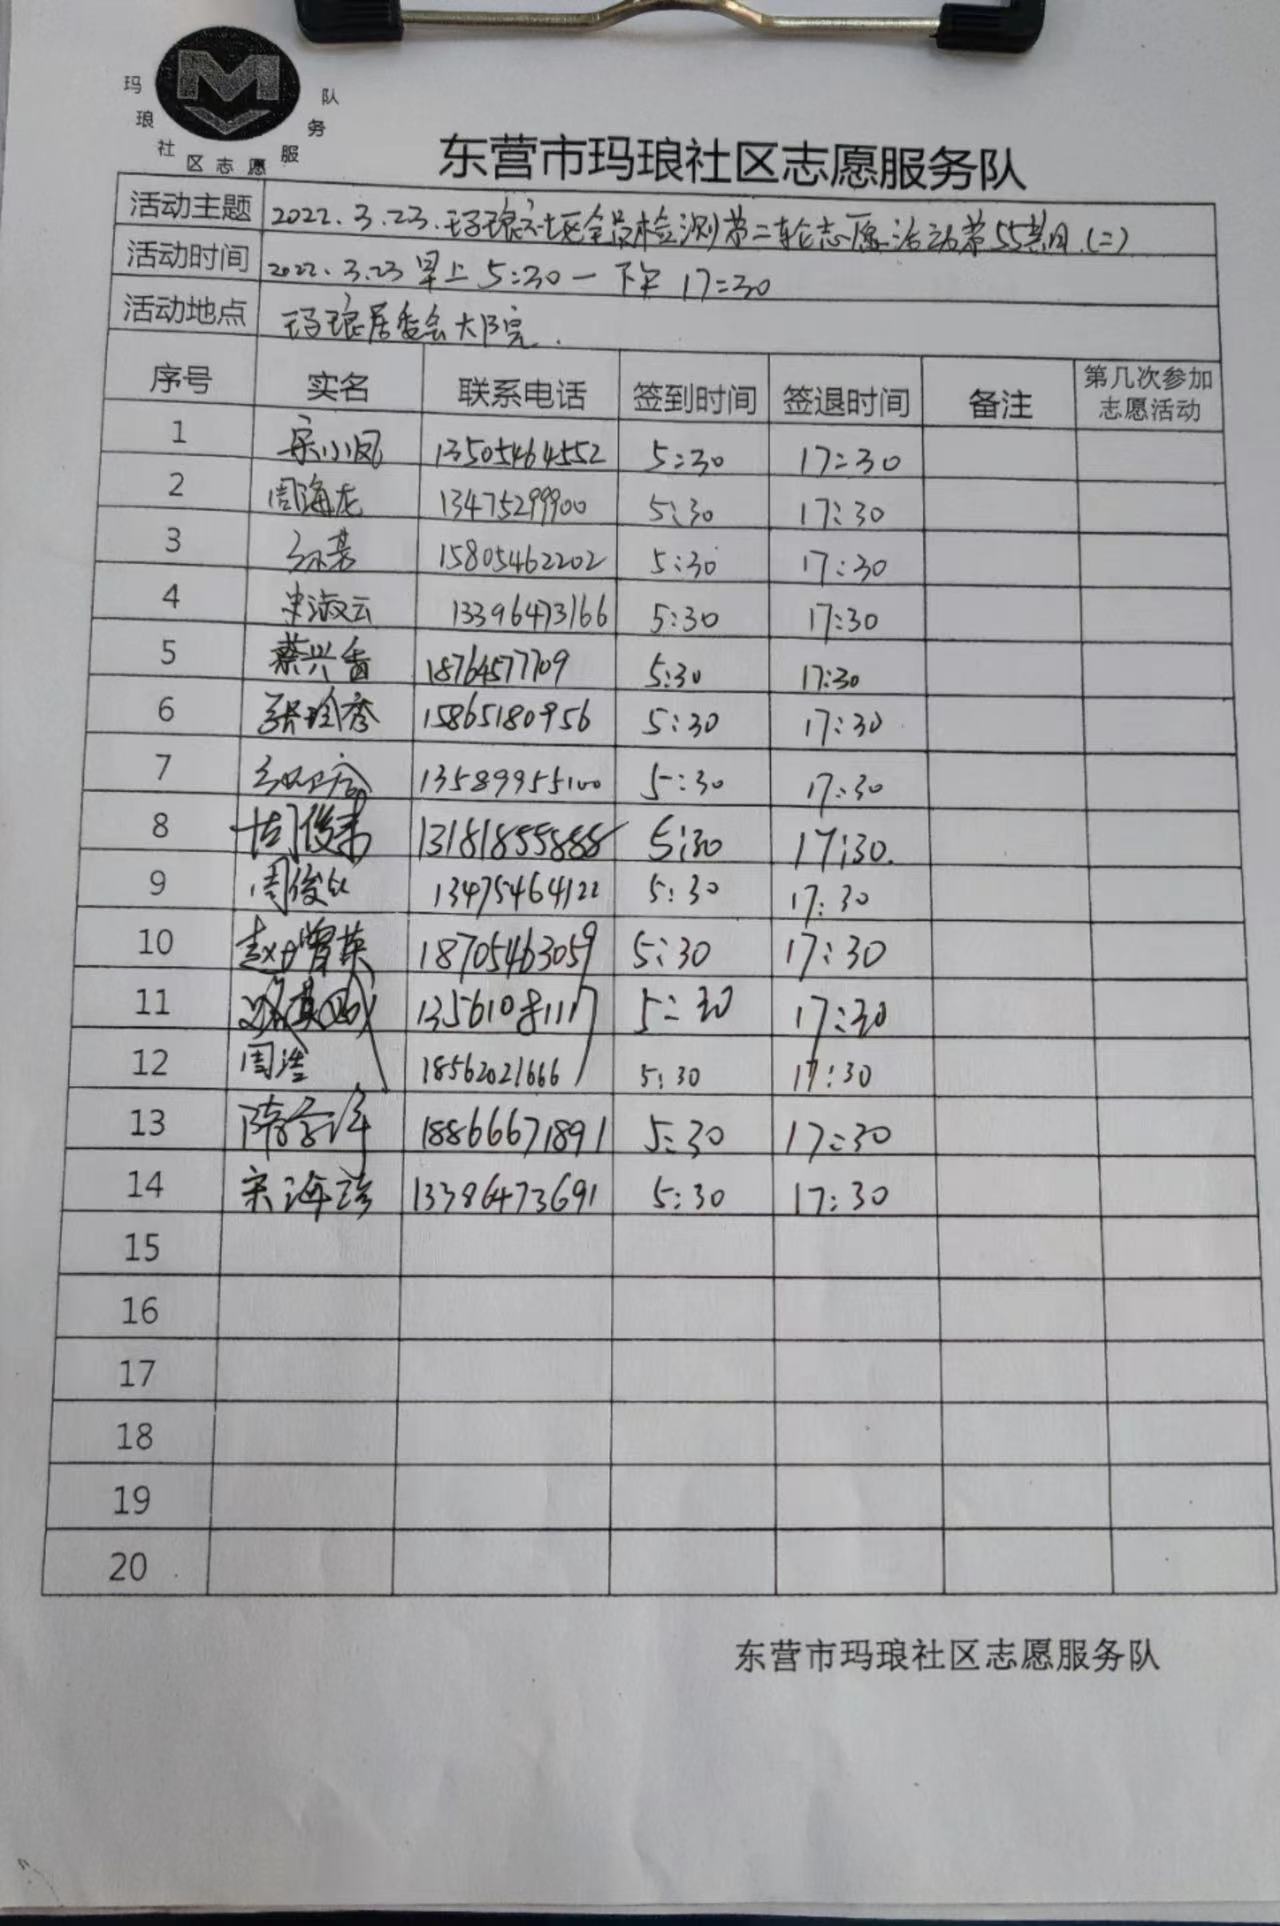 玛琅社区志愿服务队
东营市玛琅社区志愿服务队
活动主题 2022.3.23.玛琅社区全员检测第二轮志愿活动第55期(二)
活动时间 2022.3.23 早上 5:30 — 下午 17:30
活动地点 玛琅居委会大院.
序号 实名 联系电话 签到时间 签退时间 备注 第几次参加志愿活动
1 宋小凤 13505464552 5:30 17:30
2 周海龙 13475299900 5:30 17:30
3 15805462202 5:30 17:30
4 宋淑云 13396473166 5:30 17:30
5 蔡兴香 18764577709 5:30 17:30
6 张玲秀 15865180956 5:30 17:30
7 13589955100 5:30 17:30
8 胡俊 13181855888 5:30 17:30.
9 周俊 13475464122 5:30 17:30
10 赵曾英 18705463059 5:30 17:30
11 13561081117 5:30 17:30
12 周浩 18562021666 5:30 17:30
13 隋学 18866671891 5:30 17:30
14 宋海 13386473691 5:30 17:30
15
16
17
18
19
20
东营市玛琅社区志愿服务队